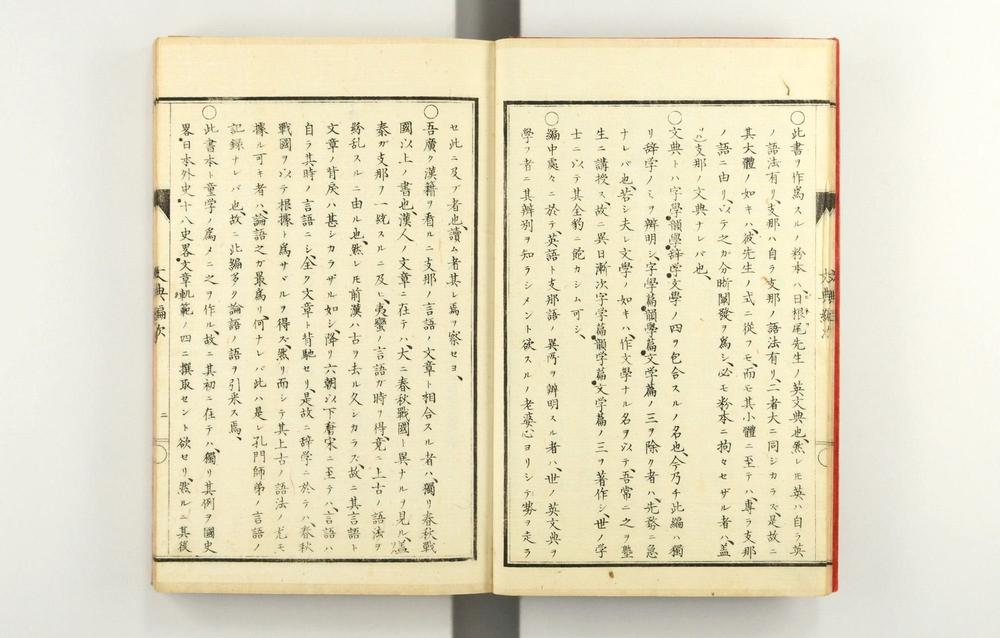 〇此書ヲ作為スルノ粉本ハ、日根尾先生ノ英文典也、然レモ英ハ自ラ英
ノ語法有リ、支那ハ自ラ支那ノ語法有リ、二者大ニ同シカラス、是故ニ
其大體ノ如キハ、彼先生ノ式ニ從フモ、而モ其小體ニ至テハ、專ラ支那
ノ語ニ由リ、以テ之カ分晣闡發ヲ為シ、必モ粉本ニ拘々セザル者ハ、蓋
シ支那ノ文典ナレバ也、
〇文典トハ字學韻學辞学文學ノ四ヲ包合スルノ名也、今乃チ此編ハ獨
リ辞学ノミヲ辨明シ、字學篇韻學篇文学篇ノ三ヲ除ク者ハ、先務ニ急
ナレバ也、若シ夫レ文學ノ如キハ、作文學ナル名ヲ以テ、吾常ニ之ヲ塾
生ニ講授ス、故ニ異日漸次字学篇韻学篇文学篇ノ三ヲ著作シ、世ノ学
士ニ以テ其全豹ニ飽カシム可シ、
〇編中處々ニ於テ英語ト支那語ノ異同ヲ辨明スル者ハ、世ノ英文典ヲ
學フ者ニ其辨別ヲ知ラシメント欲スルノ老婆心ヨリシテ勞ヲ走ラ
文典編次
セ此ニ及ブ者也、讀ム者其レ焉ヲ察セヨ、
〇吾廣ク漢籍ヲ看ルニ支那ノ言語ノ文章ト相合スル者ハ、獨リ春秋戰
國以上ノ書也、漢人ノ文章ニ在テハ、大ニ春秋戰國ト異ナルヲ見ル、蓋
秦ガ支那ヲ一統スルニ及ヒ、夷蠻ノ言語ガ時ヲ得、竟ニ上古ノ語法ヲ
紛乱スルニ由ル也、然レモ前漢ハ古ヲ去ル久シカラズ、故ニ其言語ト
文章ノ背戾ハ甚シカラザル如シ、降リ六朝以下唐宋ニ至テハ、言語ハ
自ラ其時ノ言語ニシ、全ク文章ト背馳セリ、是故ニ辞学ニ於テハ春秋
戰國ヲ以テ根據ト為サヾルヲ得ズ、然リ而シテ其上古ノ語法ノ尤モ
據ル可キ者ハ、論語之ガ最為リ、何ナレバ此ハ是レ孔門師弟ノ言語ノ
記録ナレバ也、故ニ此編多ク論語ノ語ヲ引来ス焉、
〇此書本ト童学ノ為メニ之ヲ作ル、故ニ其初ニ在テハ、獨リ其例ヲ國史
畧日本外史十八史畧文章軌範ノ四ニ撰取セント欲セリ、然ルニ其後
文典編次
二